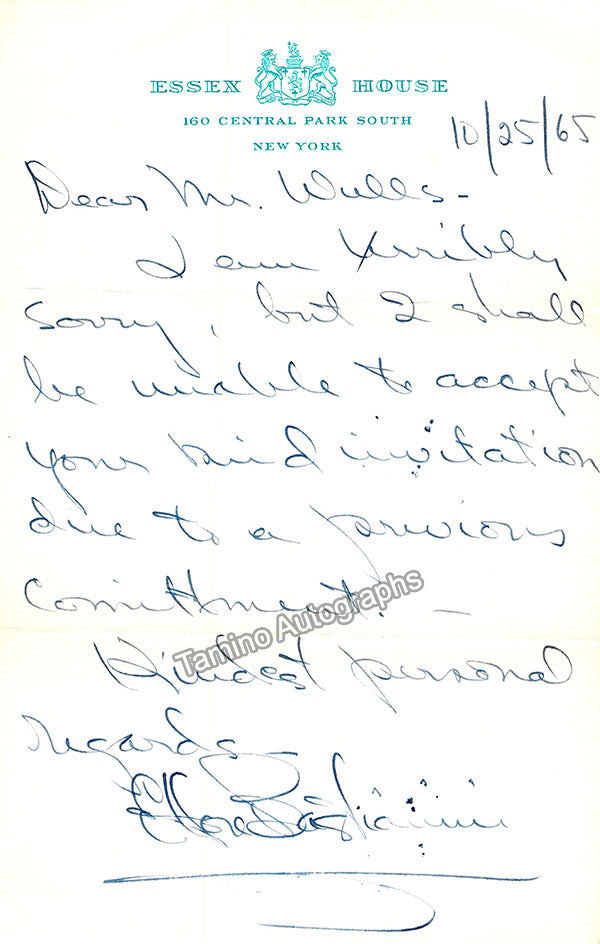 ESSEX HOUSE
160 CENTRAL PARK SOUTH
NEW YORK
10/25/65
Dear Mr. Wells-
I am terribly
sorry, but I shall
be unable to accept
your kind invitation
due to a previous
comittment. -
Tamino Autographs
Kindest personal
regards-
Ettore Bastianini